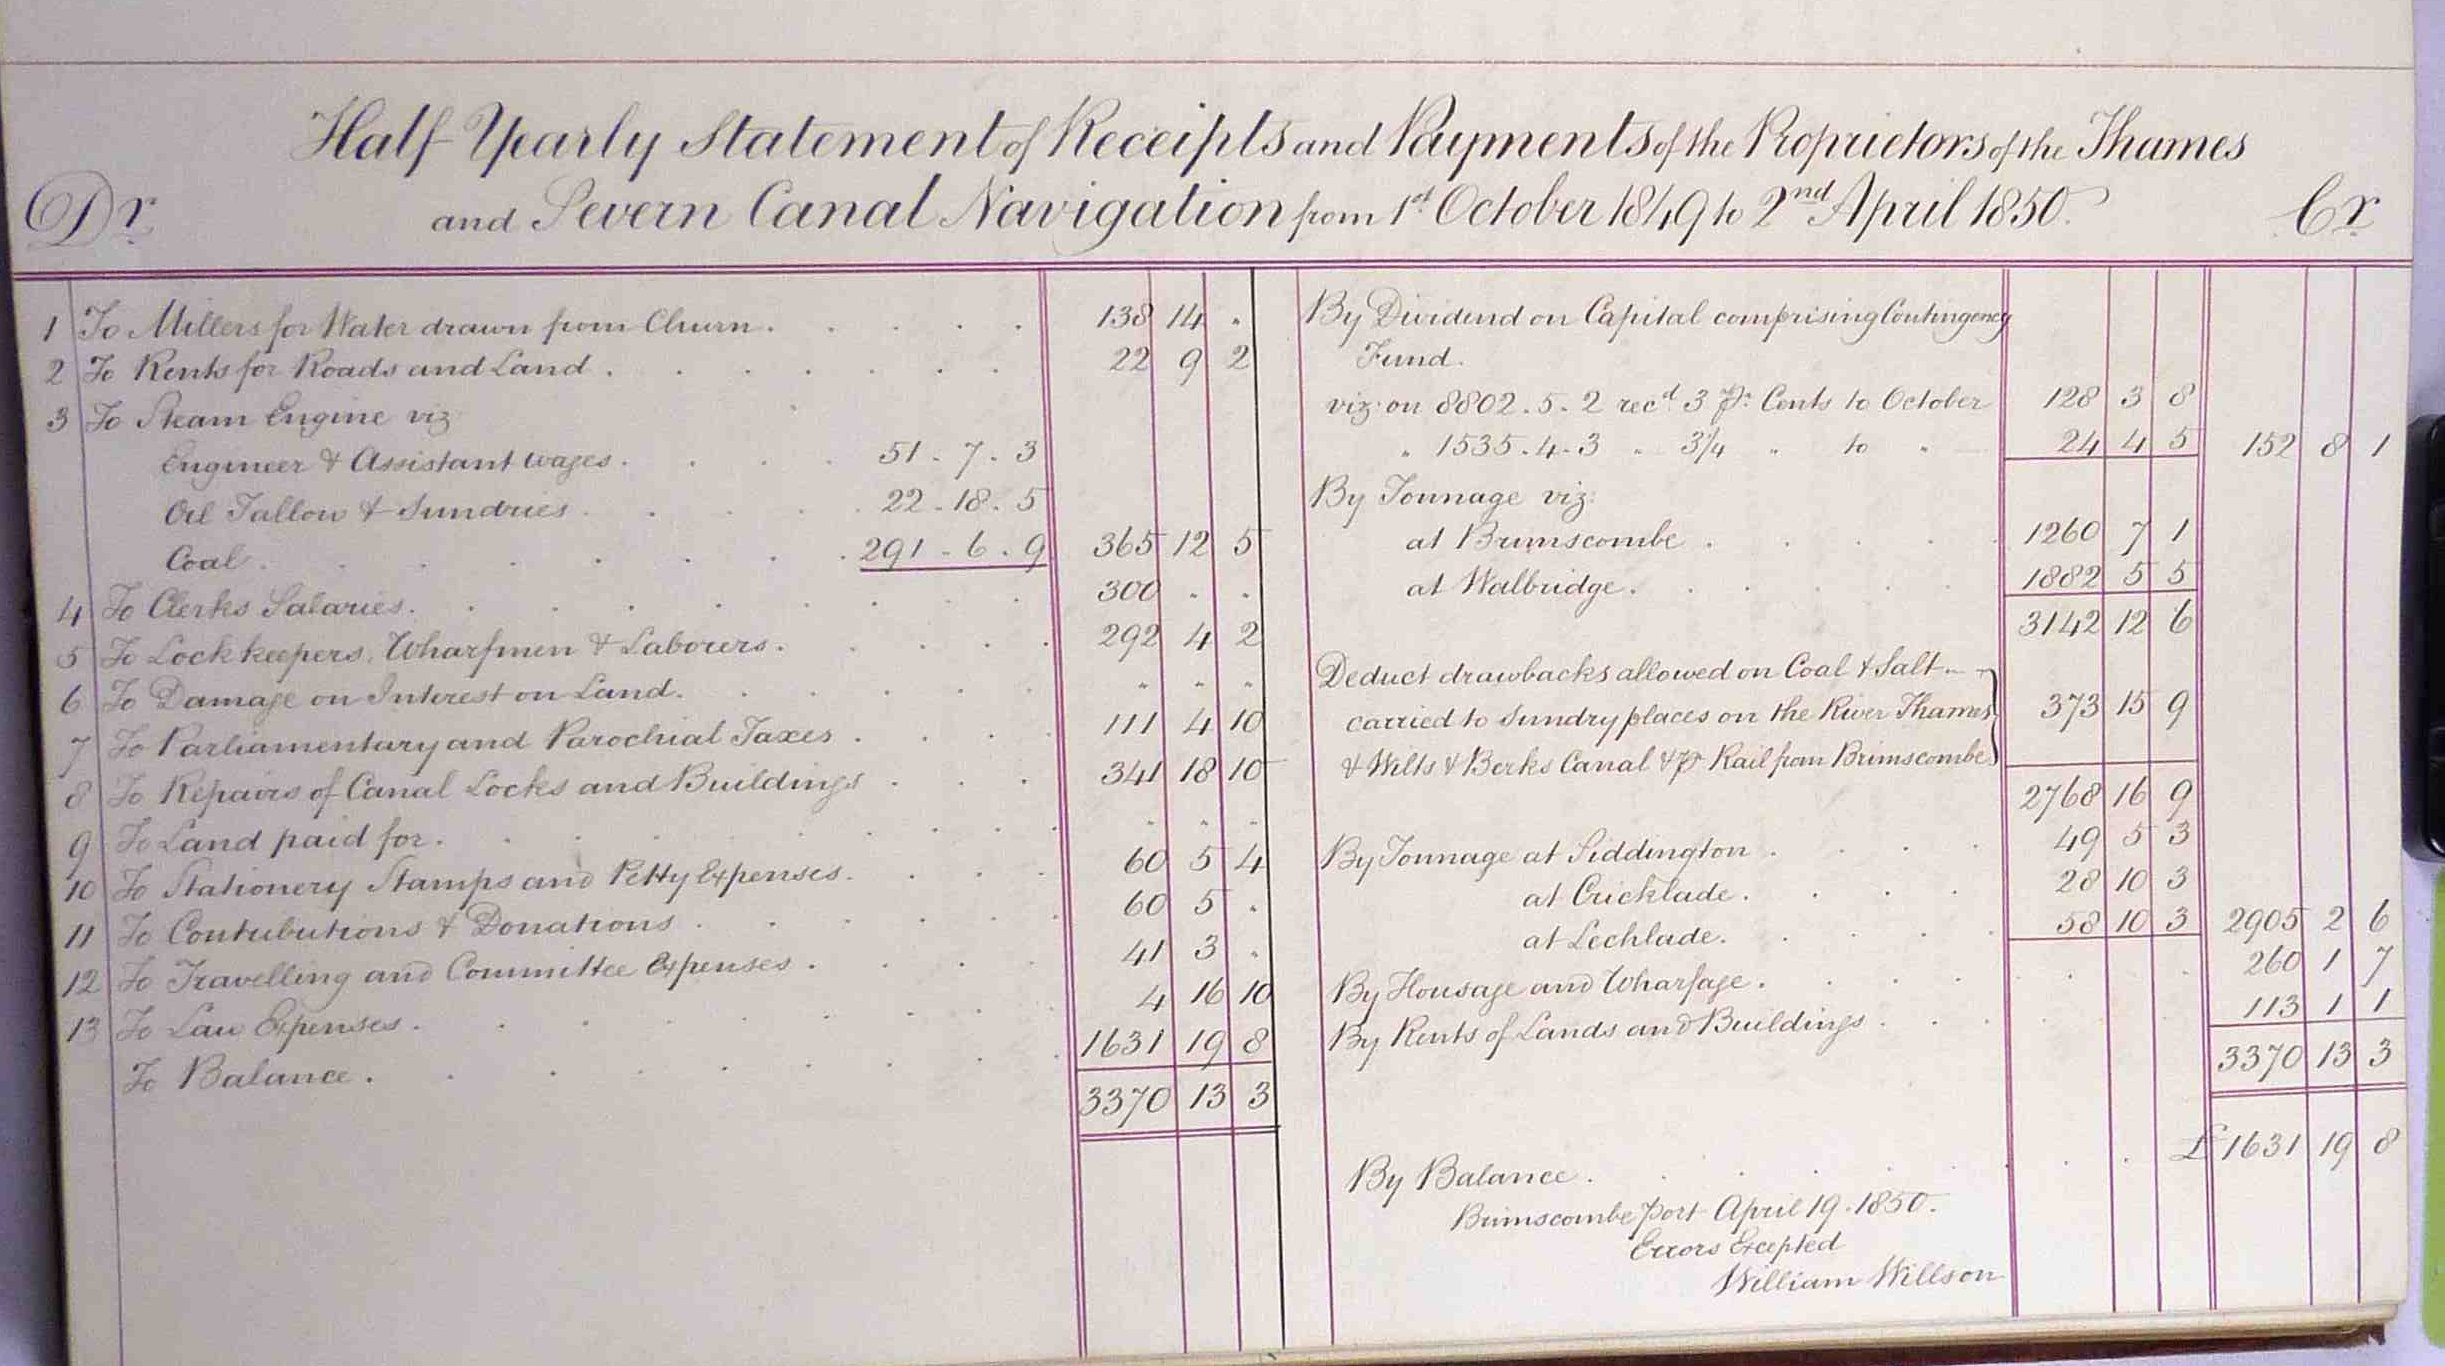 Half-Yearly Statement of Receipts and Payments of the Proprietors of the Thames
Dr. and Severn Canal Navigation from 1st October 1849 to 2nd April 1850. Cr.
1 To Millers for Water drawn from Churn. 138 14 "
2 To Rents for Roads and Land. 22 9 2
3 To Steam Engine viz
Engineer & Assistant wages. 51-7-3
Oil Tallow & Sundries 22-18-5
Coal. 291-6-9 365 12 5
4 To Clerks Salaries. 300 " "
5 To Lockkeepers, Wharfmen & Laborers. 292 4 2
6 To Damage on Interest on Land. " " "
7 To Parliamentary and Parochial Taxes. 111 4 10
8 To Repairs of Canal Locks and Buildings 341 18 10
9 To Land paid for. " " "
10 To Stationery Stamps and Petty Expenses. 60 5 4
11 To Contributions & Donations. 60 5 "
12 To Travelling and Committee Expenses. 41 3 "
13 To Law Expenses. 4 16 10
To Balance. 1631 19 8
3370 13 3
By Dividend on Capital comprising Contingency
Fund.
viz. on 8802.5.2 recd. 3 Pr. Cents to October 128 3 8
" 1535.4.3 " 3¼ " to " 24 4 5 152 8 1
By Tonnage viz:
at Brimscombe. 1260 7 1
at Walbridge. 1882 5 5
3142 12 6
Deduct drawbacks allowed on Coal & Salt
carried to Sundry places on the River Thames 373 15 9
& Wilts & Berks Canal & p Rail from Brimscombe
2768 16 9
By Tonnage at Siddington. 49 5 3
at Cricklade. 28 10 3
at Lechlade. 58 10 3 2905 2 6
By Housage and Wharfage. 260 1 7
By Rents of Lands and Buildings. 113 1 1
3370 13 3
By Balance. £ 1631 19 8
Brimscombe Port April 19. 1850.
Errors Excepted
William Willson